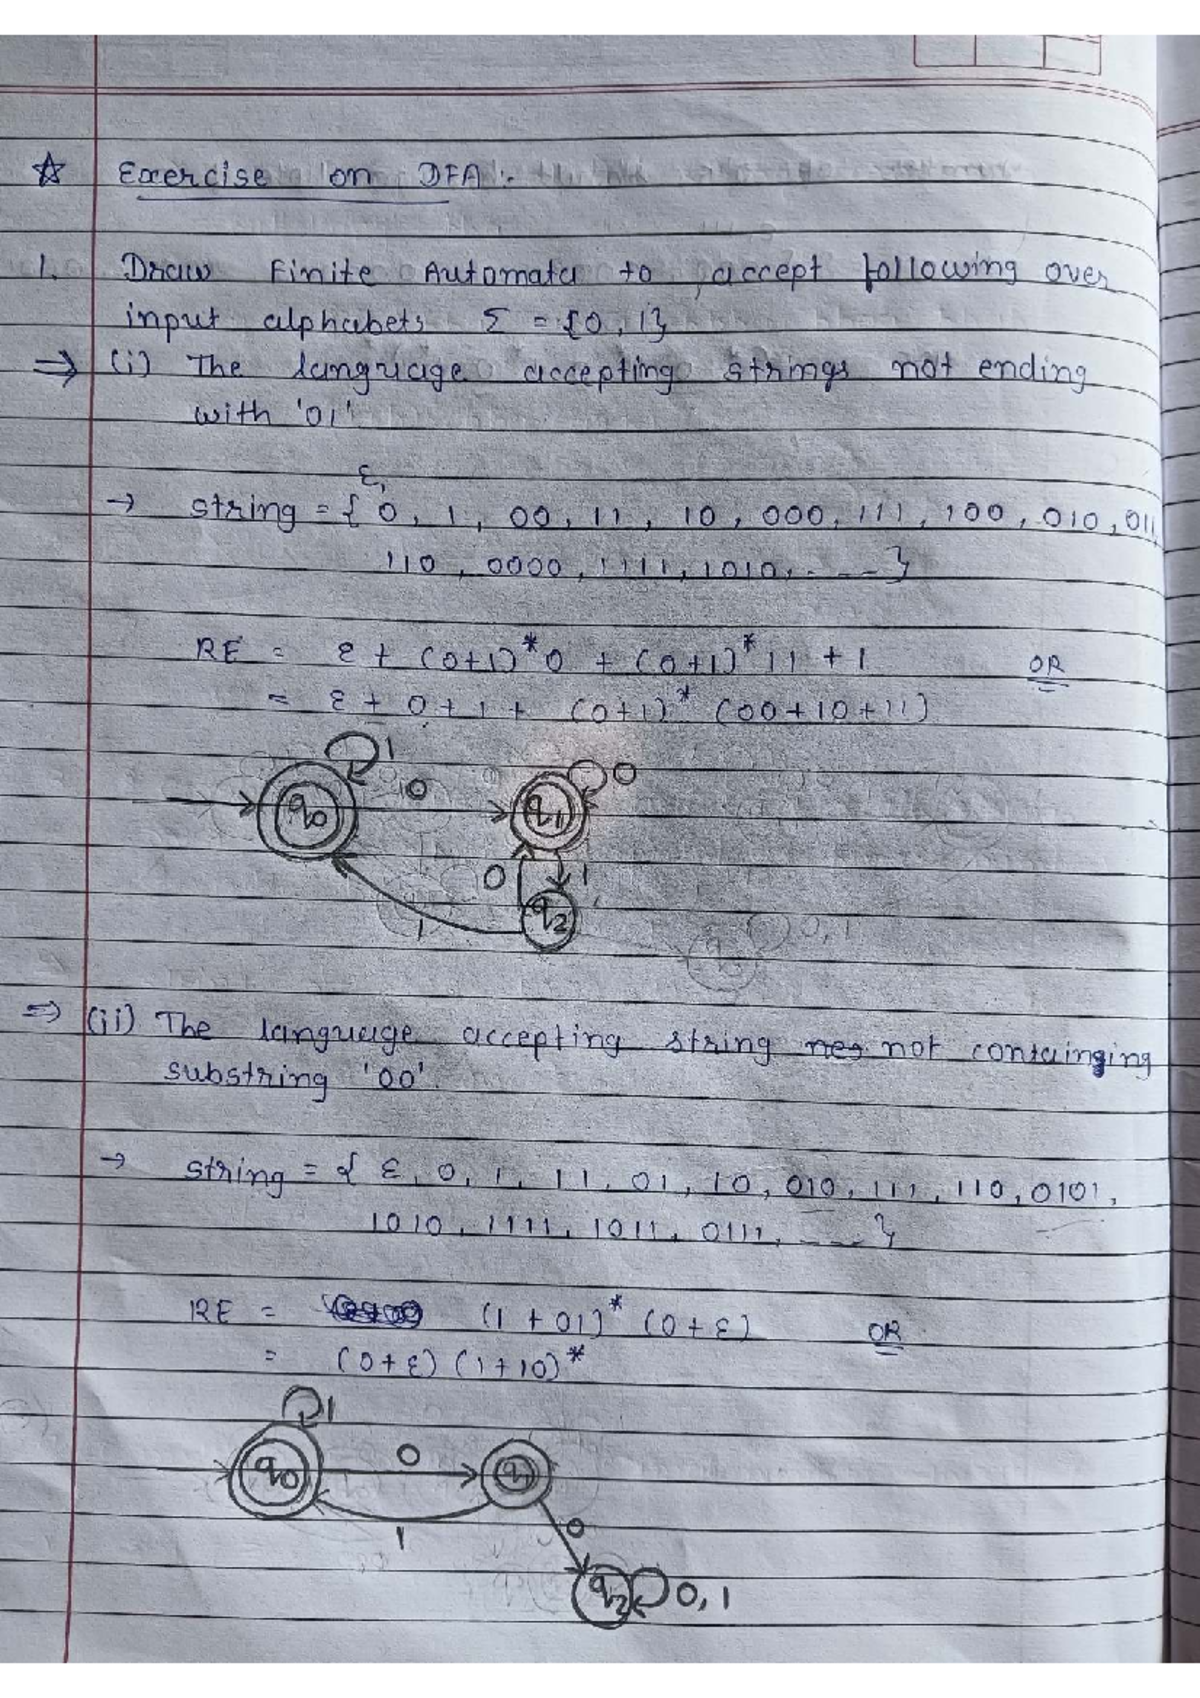 ☆ Exercise on DFA :-
1. Draw Finite Automata to accept following over
input alphabets Σ = {0, 1}
⇒ (i) The language accepting strings not ending
with '01'
ε,
→ string = { 0, 1, 00, 11, 10, 000, 111, 100, 010, 011
110, 0000, 1111, 1010, - - - - }
RE = ε + (0+1)*0 + (0+1)*11 + 1 OR
= ε + 0 + 1 + (0+1)* (00+10+11)
1
q0 0 q1 0
0 1
q2
1
⇒ (ii) The language accepting string not containging
substring '00'.
→ string = { ε, 0, 1, 11, 01, 10, 010, 111, 110, 0101,
1010, 1111, 1011, 0111, - - - - }
RE = (1 + 01)* (0+ε) OR
= (0+ε) (1+10)*
1
q0 0 q1
1 0
q2 0, 1